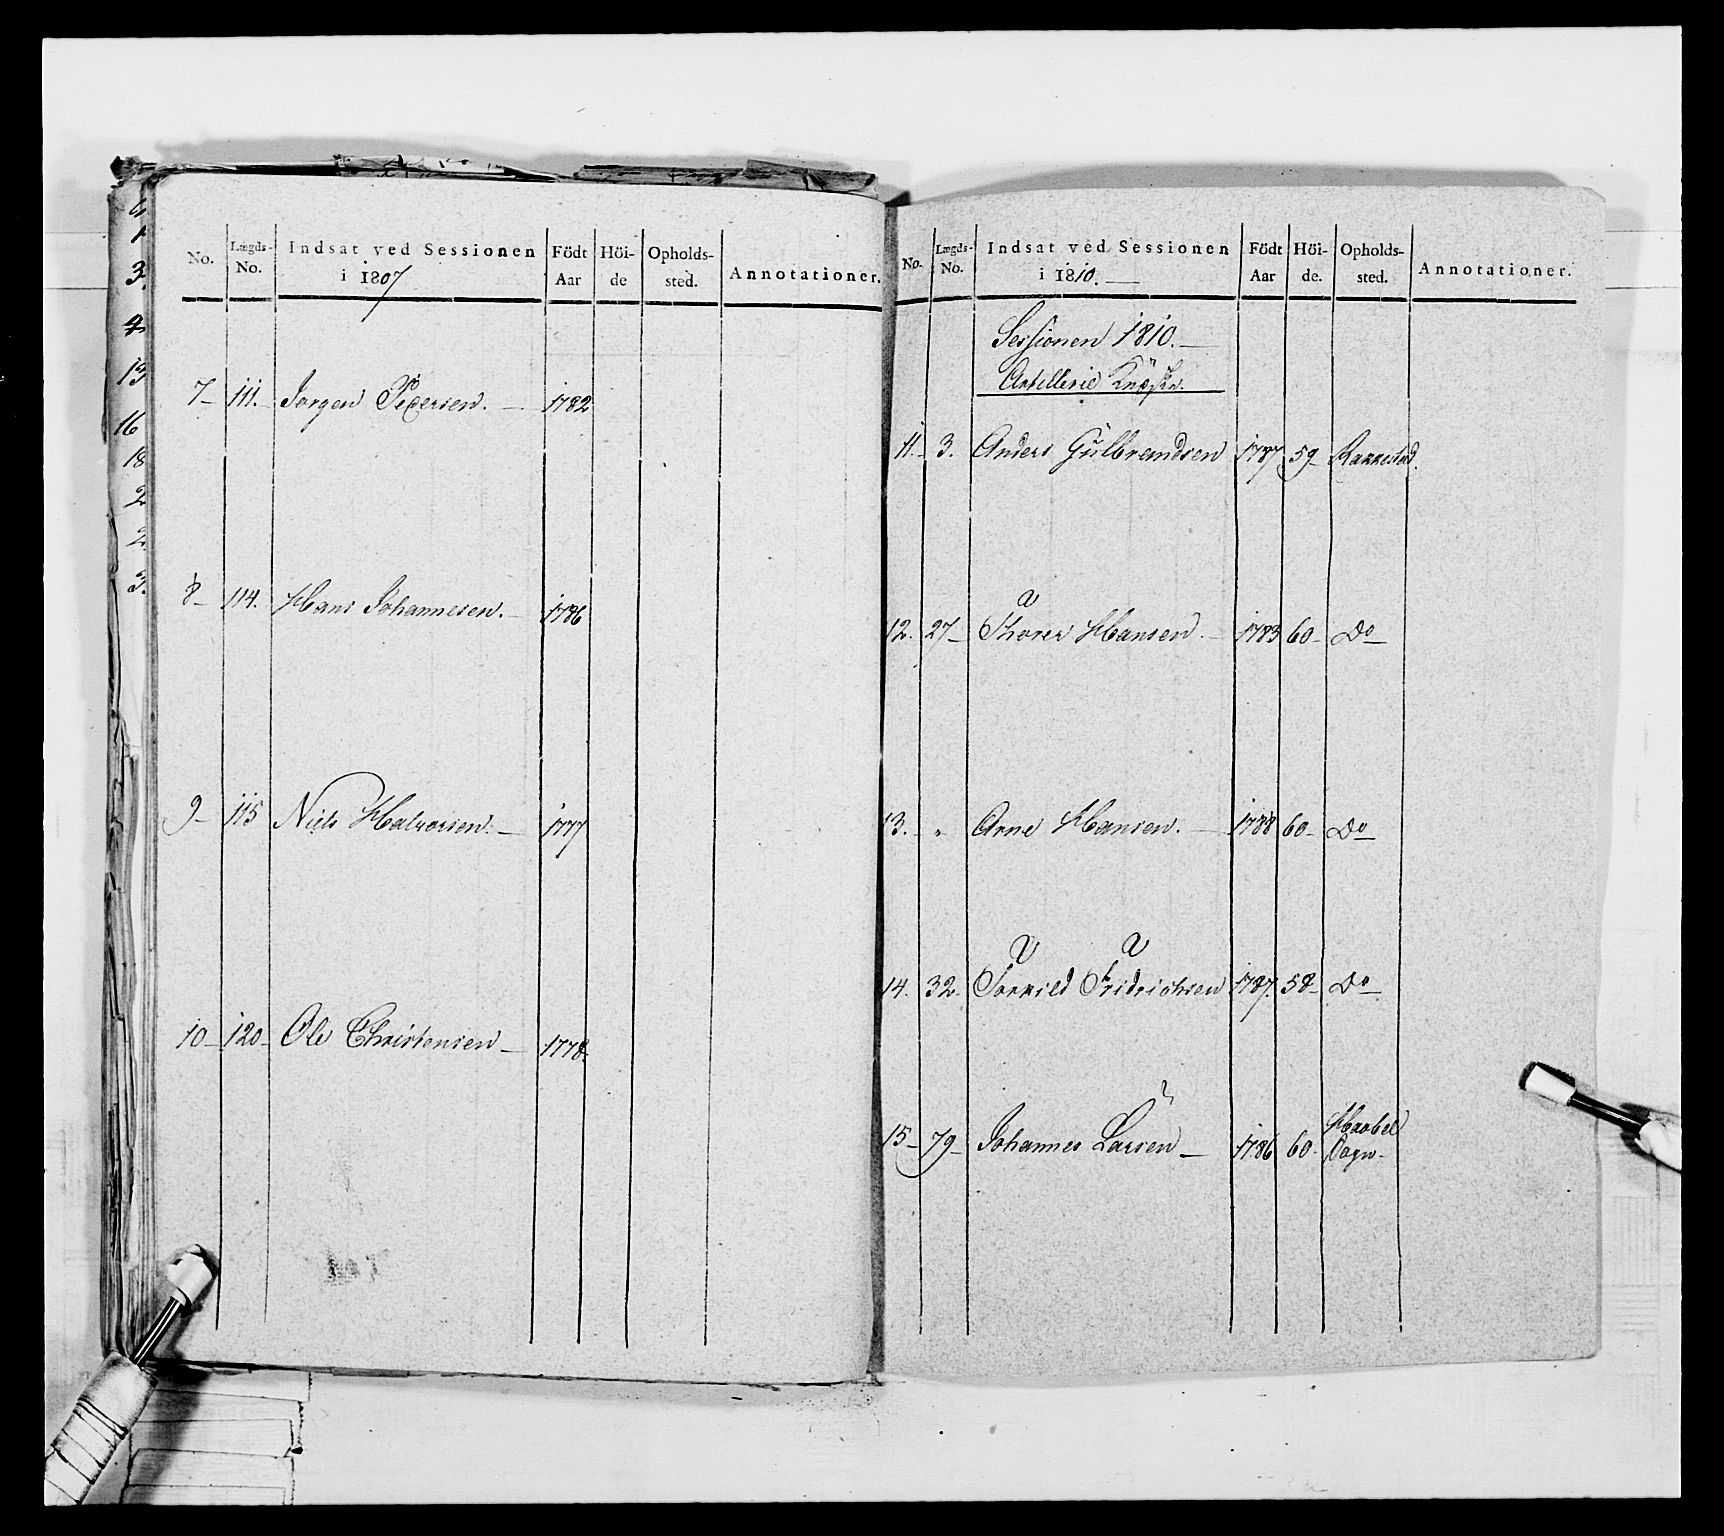 No. Lægds-No. Indsat ved Sessionen i 1807 Födt Aar Höi-de Opholds-sted. Annotationer.
7- 111. Jörgen Pedersen. — 1782
8- 114. Hans Johannesen. — 1786
9- 115 Niels Halvorsen. — 1777
10- 120- Ole Christensen — 1778.
No. Lægds-No. Indsat ved Sessionen i 1810. — Födt Aar Höi-de. Opholds-sted. Annotationer.
Sessionen 1810. —
Artillerie
11.- 3. Anders Gulbrandsen 1787 59- Rakkestad.
12. 27- Thorer Hansen. — 1783 60- Do
13. " Arne Hansen. — 1788 60- Do
14. 32. Torkild Fridrichsen 1787. 58- Do
15- 79- Johannes Larsen — 1786 60- Haabel Sogn-
3.
4
15
16
18
2
2.
3.